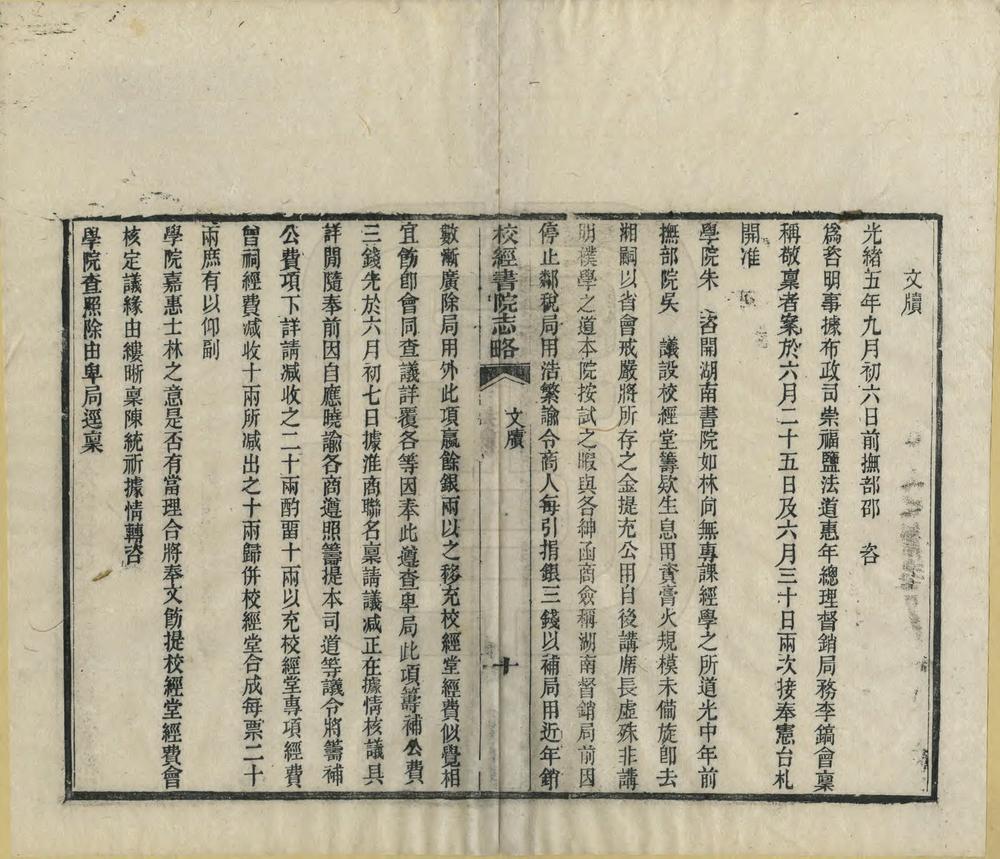 文牘
光緒五年九月初六日前撫部邵　咨
爲咨明事據布政司崇福鹽法道惠年總理督銷局務李鎬會稟
稱敬稟者案於六月二十五日及六月三十日兩次接奉憲台札
開准
學院朱　咨開湖南書院如林向無專課經學之所道光中年前
撫部院吳　議設校經堂籌欵生息用資膏火規模未備旋卽去
湘嗣以省會戒嚴將所存之金提充公用自後講席長虛殊非講
明樸學之道本院按試之暇與各紳函商僉稱湖南督銷局前因
停止鄰稅局用浩繁諭令商人每引捐銀三錢以補局用近年銷
校經書院志略
文牘
十
數漸廣除局用外此項贏餘銀兩以之移充校經堂經費似覺相
宜飭卽會同查議詳覆各等因奉此遵查卑局此項籌補公費
三錢先於六月初七日據淮商聯名稟請議減正在據情核議具
詳間隨奉前因自應曉諭各商遵照籌提本司道等議令將籌補
公費項下詳請減收之二十兩酌畱十兩以充校經堂專項經費
曾祠經費減收十兩所減出之十兩歸併校經堂合成每票二十
兩庶有以仰副
學院嘉惠士林之意是否有當理合將奉文飭提校經堂經費會
核定議緣由縷晣稟陳統祈據情轉咨
學院查照除由卑局逕稟